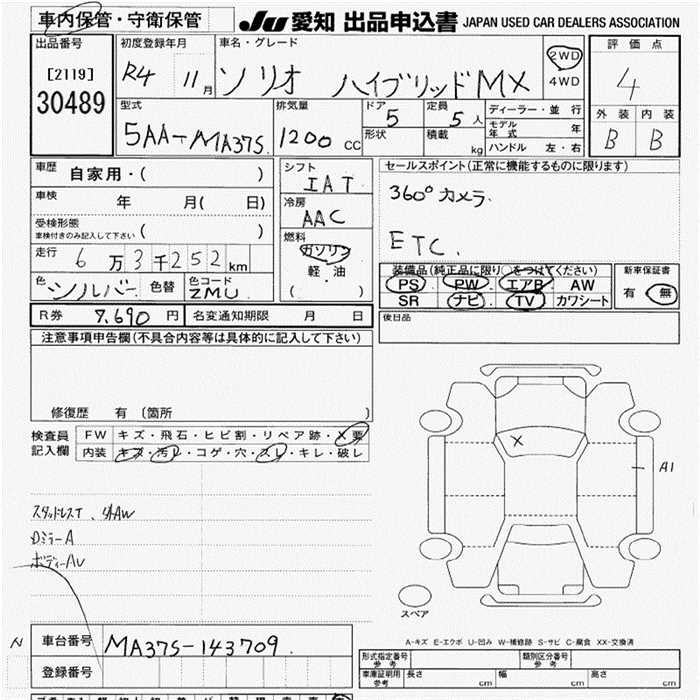 車内保管・守衛保管 JU 愛知 出品申込書 JAPAN USED CAR DEALERS ASSOCIATION
出品番号 初度登録年月 車名・グレード 評価点
[2119] R4 11月 ソリオ ハイブリッドMX 2WD 4
30489 4WD
型式 排気量 ドア 5 定員 5人 ディーラー・並行 外装 内装
5AA-MA37S 1200 CC 形状 積載 kg モデル年式 年 B B
ハンドル 左・右
車歴 自家用・( ) シフト IAT セールスポイント(正常に機能するものに限ります)
車検 年 月( 日) 冷房 AAC 360° カメラ
受検形態 車検付きのみ記入して下さい ( ) 燃料 ガソリン ETC.
走行 6万3千252km 軽・油 装備品(純正品に限り○をつけてください) 新車保証書
色 シルバー 色替 色コード ZMU ( ) PS PW エアB AW 有 無
SR ナビ TV カワシート
R券 7,690円 名変通知期限 月 日 後日品
注意事項申告欄(不具合内容等は具体的に記入して下さい)
修復歴 有 〔箇所 〕
検査員 FW キズ・飛石・ヒビ割・リペア跡・X要
記入欄 内装 キズ・汚レ・コゲ・穴・スレ・キレ・破レ
X
A1
スタッドレスT、外AW
DミラーA
ボディーAU
スペア
A-キズ E-エクボ U-凹み W-補修跡 S-サビ C-腐食 XX-交換済
N 車台番号 MA37S-143709
登録番号
形式指定番号 参考 類別区分番号 参考
車庫証明用 参考 長さ cm 幅 cm 高さ cm